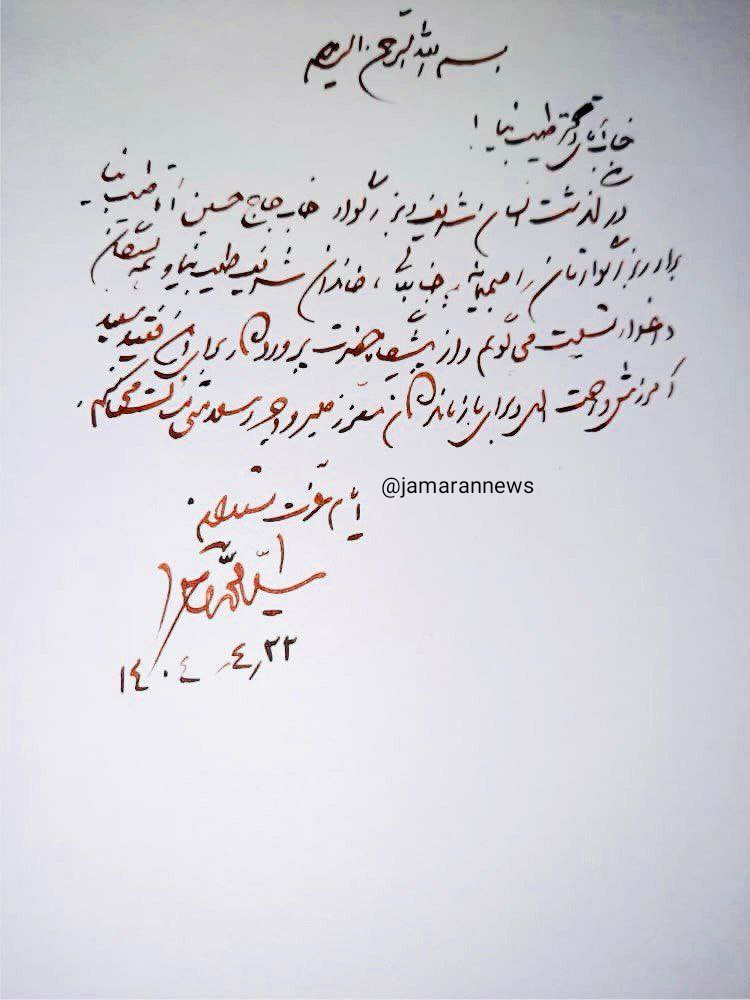 بسم الله الرحمن الرحیم
جناب آقای دکتر طبیب نیا!
درگذشت انسان شریف و بزرگوار جناب حاج حسین آقا طبیب نیا
برادر بزرگوارتان را صمیمانه به جنابعالی، خاندان شریف طبیب نیا و همه بستگان
داغدار تسلیت می‌گویم و از پیشگاه حضرت پروردگار برای آن فقید سعید
آمرزش و رحمت الهی و برای بازماندگان معزز صبر و اجر و سلامتی مسئلت می‌کنم.
@jamarannews
ایام عزت مستدام
سید محمد خاتمی
۱۴۰۴ ٫۴٫۲۲